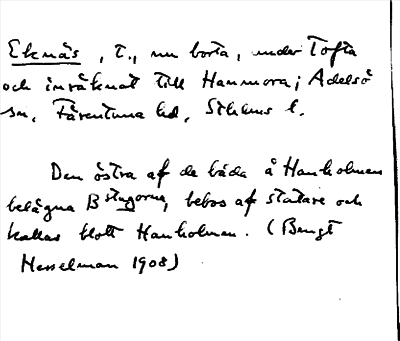 Eknäs, t., nu borta, under Tofta
och inräknat till Hanmora i Adelsö
sn, Färentuna hd, Sthlms l.
Den östra af de båda å Hanholmen
belägna Bstugorna, bebos af statare och
kallas blott Hanholmen. (Bengt
Hesselman 1908)